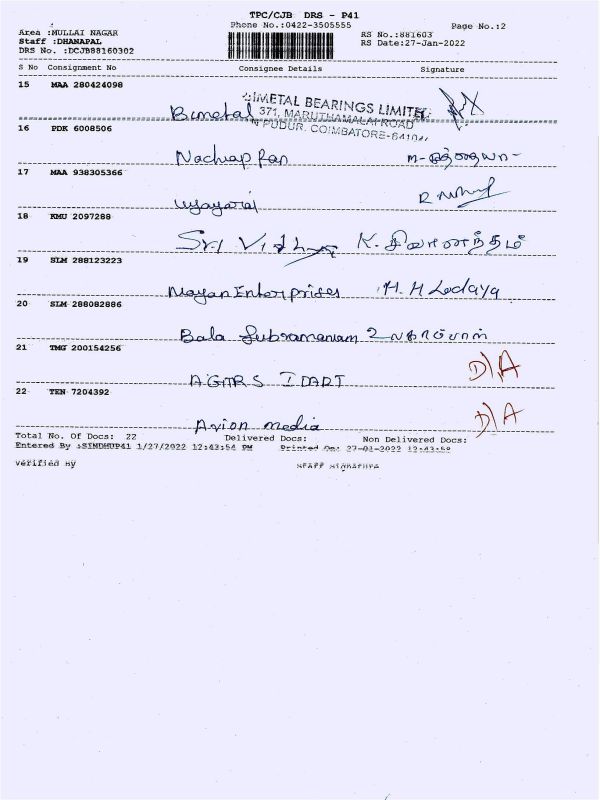 TPC/CJB DRS - P41
Phone No.:0422-3505555
Page No.:2
Area :MULLAI NAGAR
Staff :DHANAPAL
DRS No. :DCJB88160302
RS No.:881603
RS Date:27-Jan-2022
S No Consignment No Consignee Details Signature
15 MAA 280424098
Bimetal
BIMETAL BEARINGS LIMITED
371, MARUTHAMALAI ROAD
N PUDUR, COIMBATORE-6410
16 PDK 6008506
Nachiappan
17 MAA 938305366
Vijayaraj
18 KMU 2097288
Sri Vidhya K. சிவானந்தம்
19 SLM 288123223
Nayan Enterprises H.H Lodaya
20 SLM 288082886
Bala Subramaniam உலகப்பன்
21 TMG 200154256
D/A
22 TEN 7204392
Avion media D/A
Total No. Of Docs: 22 Delivered Docs: Non Delivered Docs:
Entered By :SINDHUP41 1/27/2022 12:43:54 PM Printed On: 27-01-2022 12:43:58
Verified By STAFF SIGNATURE